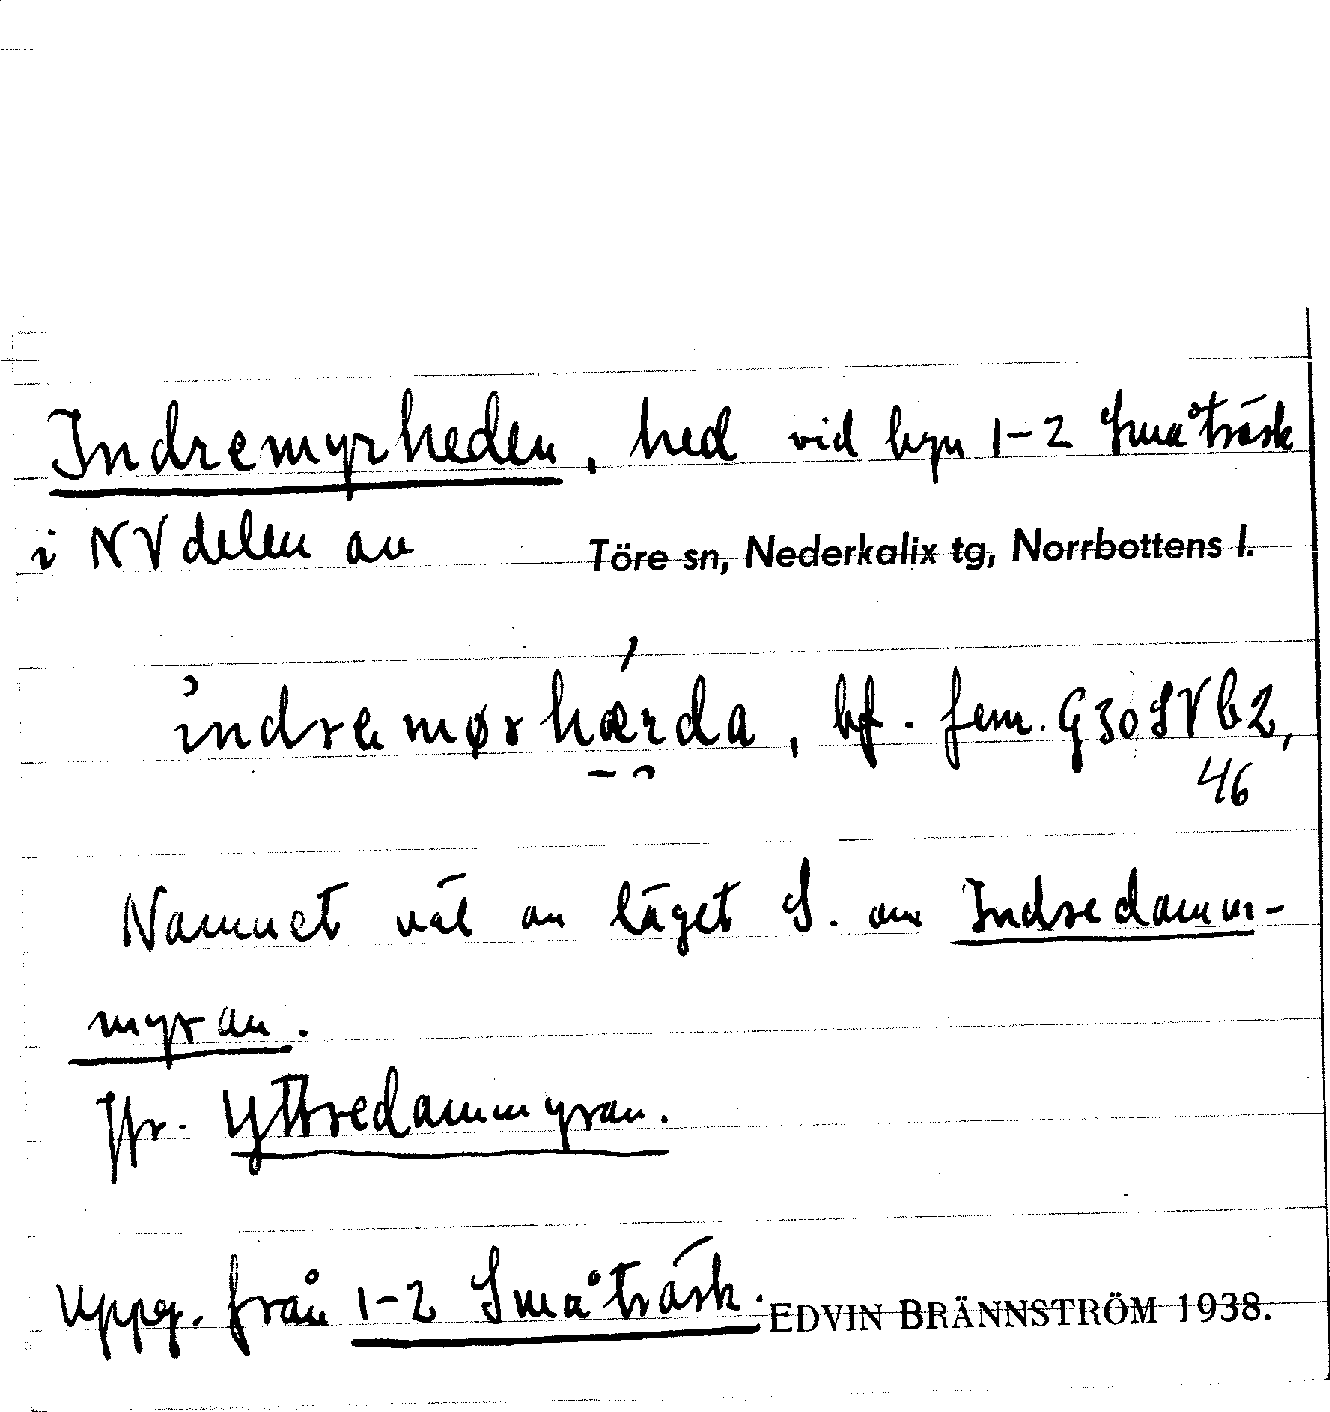 Indremyrheden, hed vid byn 1-2 Småträsk
i NV delen av Töre sn, Nederkalix tg, Norrbottens l.
indremørhærda, bf. fem. G30SVb2,
46
Namnet väl av läget S. om Indredamm-
myran.
Jfr. Yttredammyran.
Uppg. från 1-2 Småträsk. EDVIN BRÄNNSTRÖM 1938.